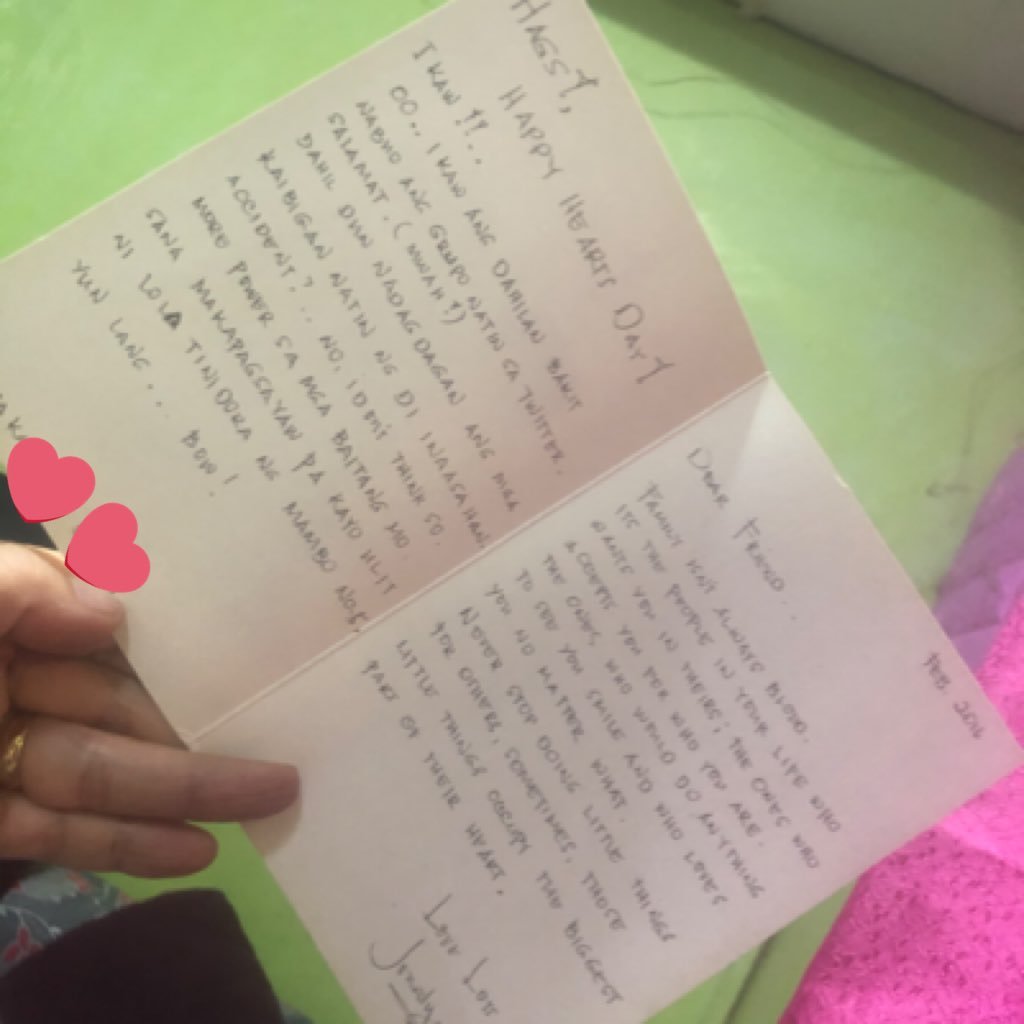 HAGSY,
HAPPY HEARTS DAY
IKAW !?..
OO.. IKAW ANG DAHILAN BAKIT
NABUO ANG GRUPO NATIN SA TWITTER.
SALAMAT. (MWAH!)
DAHIL DUN NADAGDAGAN ANG MGA
KAIBIGAN NATIN NG DI INAASAHAN.
ACCIDENT? .. NO, I DON'T THINK SO.
MORE POWER SA MGA BAITANG MO.
SANA MAKAPAGSAYAW PA KAYO ULIT
NI LOLA TINIDORA NG MAMBO NO.5.
YUN LANG... BOW!
FEB. 2016
DEAR FRIEND...
FAMILY ISN'T ALWAYS BLOOD.
ITS THE PEOPLE IN YOUR LIFE WHO
WANTS YOU IN THEIRS; THE ONES WHO
ACCEPTS YOU FOR WHO YOU ARE.
THE ONES, WHO WOULD DO ANYTHING
TO SEE YOU SMILE AND WHO LOVES
YOU NO MATTER WHAT.
NEVER STOP DOING LITTLE THINGS
FOR OTHERS, SOMETIMES, THOSE
LITTLE THINGS OCCUPY THE BIGGEST
PART OF THEIR HEART.
LOVE LOTS